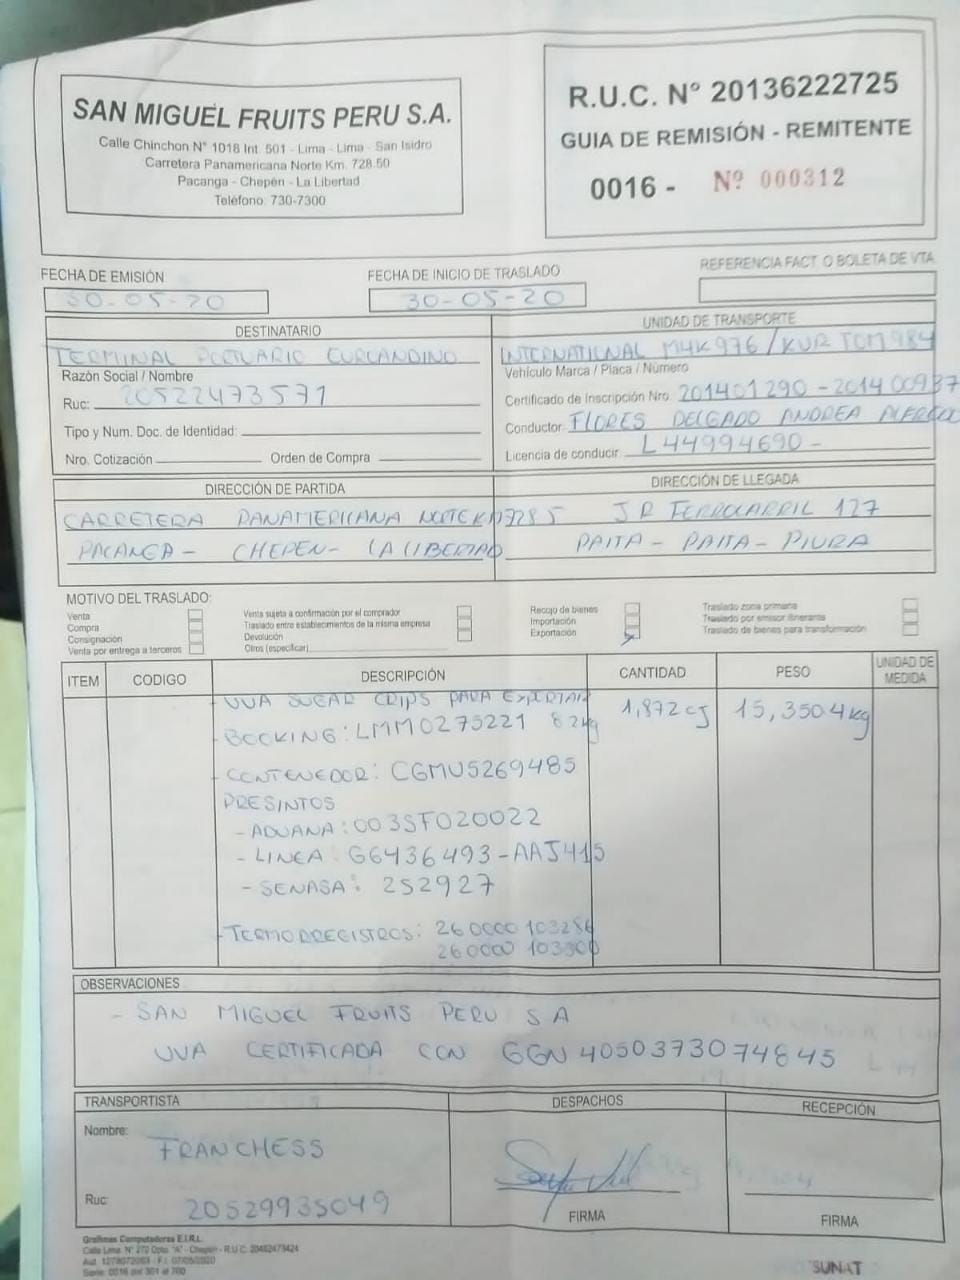 SAN MIGUEL FRUITS PERU S.A.
Calle Chinchon N° 1018 Int. 501 - Lima - Lima - San Isidro
Carretera Panamericana Norte Km. 728.50
Pacanga - Chepén - La Libertad
Teléfono: 730-7300
R.U.C. N° 20136222725
GUIA DE REMISIÓN - REMITENTE
0016 - Nº 000312
FECHA DE EMISIÓN
30-05-20
FECHA DE INICIO DE TRASLADO
30-05-20
REFERENCIA FACT. O BOLETA DE VTA.
DESTINATARIO
TERMINAL PORTUARIO EUROANDINO
Razón Social / Nombre
Ruc: 20522473571
Tipo y Num. Doc. de Identidad:
Nro. Cotización Orden de Compra
UNIDAD DE TRANSPORTE
INTERNATIONAL M4K976/KUR TCM984
Vehículo Marca / Placa / Número
Certificado de Inscripción Nro. 201401290-201400937
Conductor: FLORES DELGADO ANDREA
Licencia de conducir: L44994690-
DIRECCIÓN DE PARTIDA
CARRETERA PANAMERICANA NORTE KM7285
PACANGA - CHEPEN - LA LIBERTAD
DIRECCIÓN DE LLEGADA
JR FERROCARRIL 127
PAITA - PAITA - PIURA
MOTIVO DEL TRASLADO:
Venta
Compra
Consignación
Venta por entrega a terceros
Venta sujeta a confirmación por el comprador
Traslado entre establecimientos de la misma empresa
Devolución
Otros (especificar)
Recojo de bienes
Importación
Exportación
Traslado zona primaria
Traslado por emisor itinerante
Traslado de bienes para transformación
ITEM CODIGO DESCRIPCIÓN CANTIDAD PESO UNIDAD DE MEDIDA
- UVA SUGAR CRIPS PARA EXPORTAR 1,872 CJ 15,350.4kg
- BOOKING: LMM0275221 8.2kg
- CONTENEDOR: CGMU5269485
PRESINTOS
- ADUANA: 003SF020022
- LINEA: G6436493-AAJ415
- SENASA: 252927
- TERMORREGISTROS: 260000 103286
260000 103300
OBSERVACIONES
- SAN MIGUEL FRUITS PERU S A
UVA CERTIFICADA CON GGN 4050373074845
TRANSPORTISTA
Nombre:
FRANCHESS
Ruc:
20529935049
DESPACHOS
FIRMA
RECEPCIÓN
FIRMA
Grafimas Computadoras E.I.R.L.
Calle Lima N° 270 Dpto. "A" - Chepén - R.U.C. 20482473424
Aut. 1278072063 - F.I. 07/05/2020
Serie: 0016 del 301 al 700
SUNAT